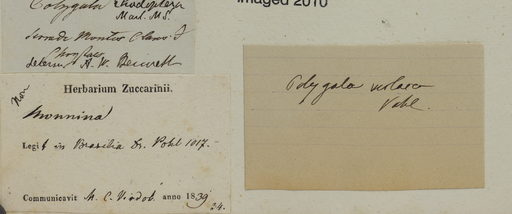 Polygala rhodoptera
Mart. MS.
Serra de Montes Claros
determ. A. W. Bennett
Imaged 2010
Non
Herbarium Zuccarinii.
Monnina
Legit in Brasilia Dr. Pohl 1017.
Communicavit M. C. Vindob. anno 1839
24.
Polygala
Vahl.